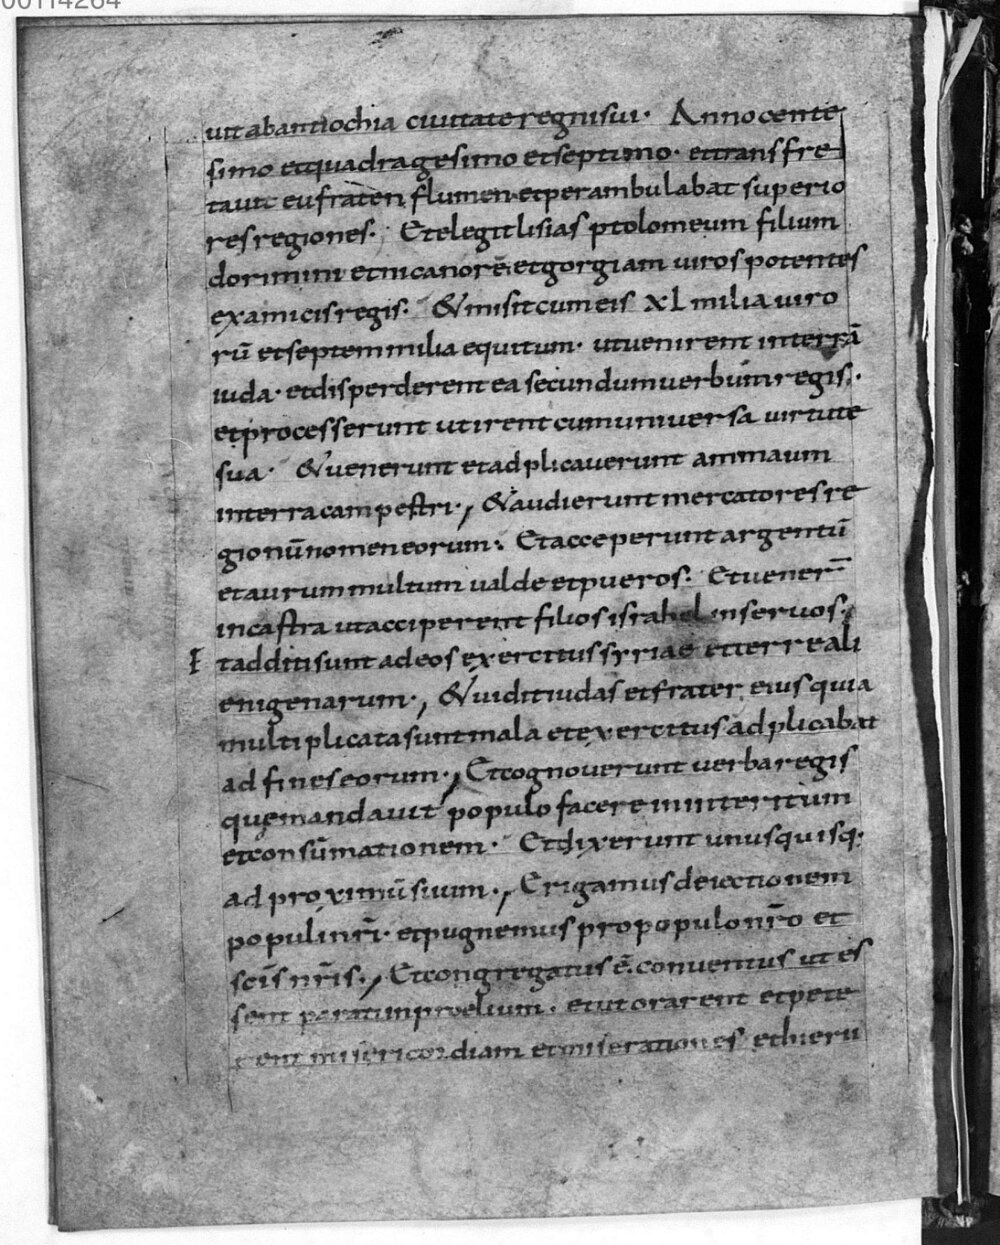 00114264
uit abantiochia ciuitate regni sui· Anno cente
simo et quadragesimo et septimo· et transfre
tauit eufraten flumen· et perambulabat superio
res regiones· Et elegit lisias ptolomeum filium
dorimini et nicanorē et gorgiam uiros potentes
ex amicis regis· & misit cum eis XL milia uiro
rū et septem milia equitum· ut uenirent in terrā
iuda· et disperderent ea secundum uerbum regis·
et processerunt ut irent cum uniuersa uirtute
sua· & uenerunt et adplicauerunt ammaum
in terra campestri·, & audierunt mercatores re
gionū nomen eorum· Et acceperunt argentū
et aurum multum ualde et pueros· Et uener̄
in castra ut acciperent filios israhel in seruos·
Et additi sunt ad eos exercitus syriae et terre ali
enigenarum·, & uidit iudas et frater eius quia
multiplicata sunt mala et exercitus adplicabat
ad fines eorum·, Et cognouerunt uerba regis
quę mandauit populo facere in interitum
et consūmationem· Et dixerunt unusquisq·
ad proximū suum·, Erigamus deiectionem
populi nr̄i· et pugnemus pro populo nr̄o et
sc̄is nr̄is·, Et congregatus ē· conuentus ut es
sent parati in proelium· et ut orarent et pete
rent misericordiam et miserationes et hieru